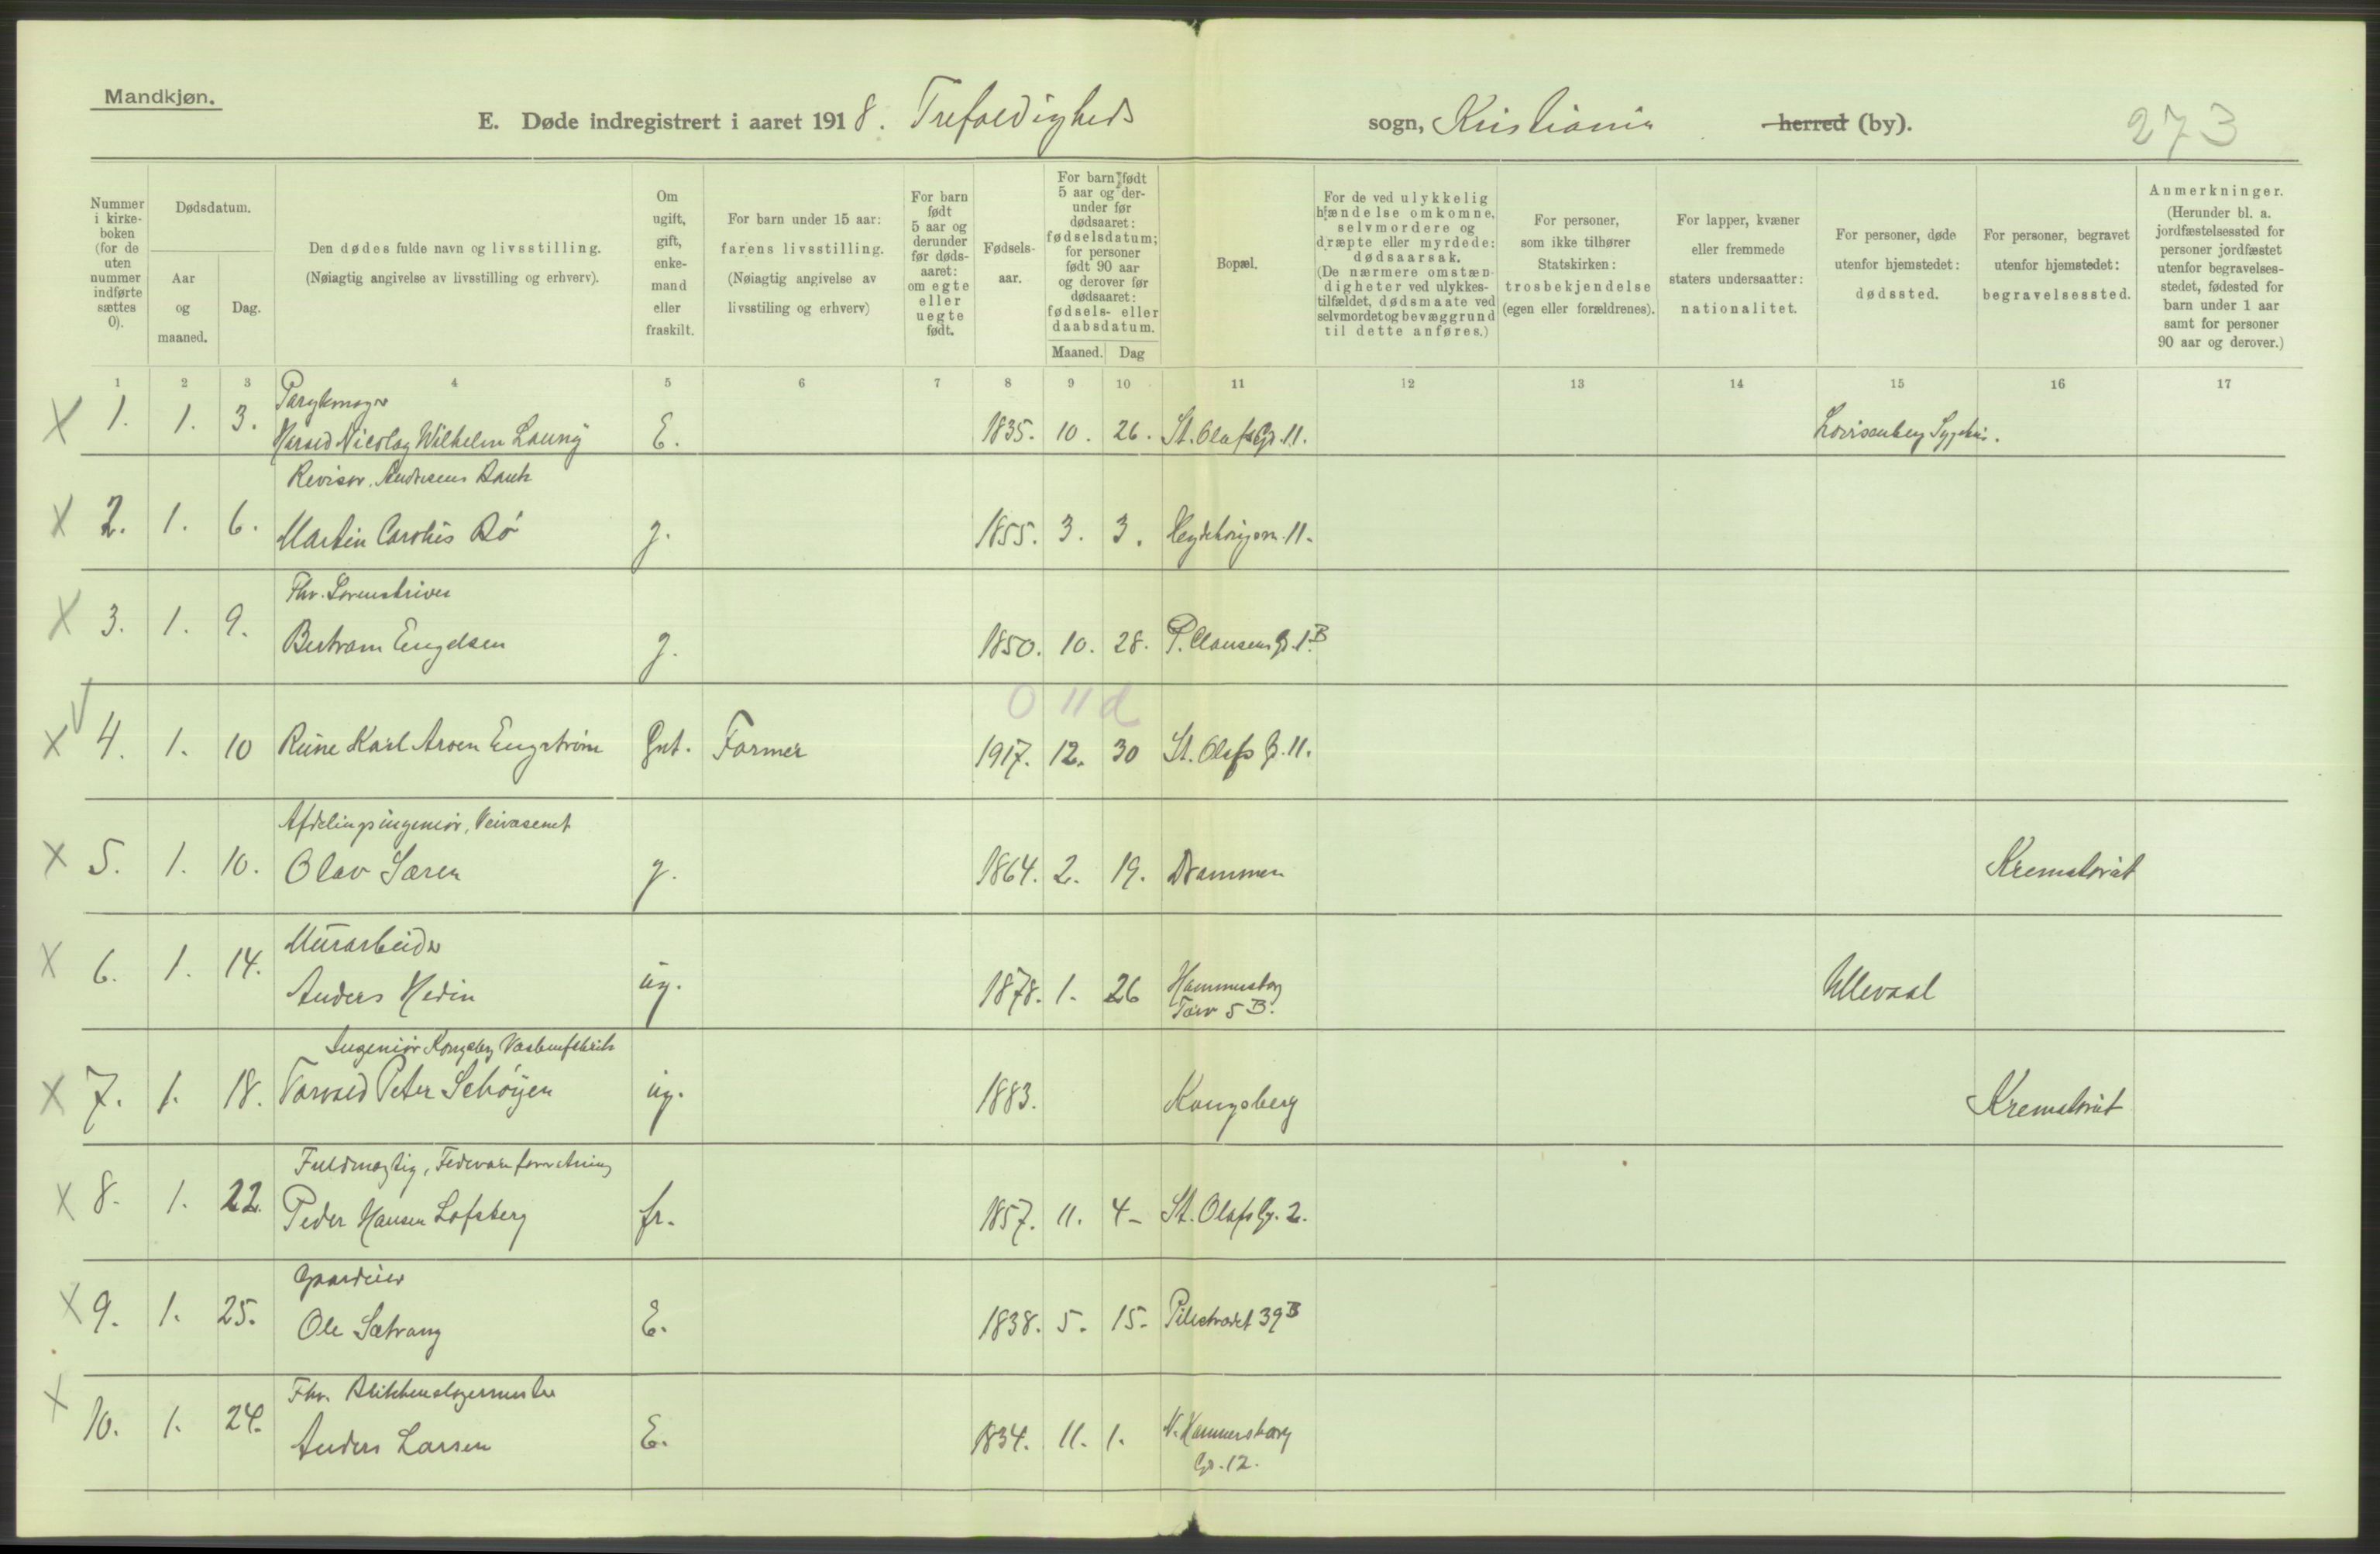 Mandkjøn.
E. Døde indregistrert i aaret 1918. Trefoldigheds sogn, Kristiania herred (by). 273
Nummer i kirkeboken (for de uten nummer indførte sættes 0).
Dødsdatum.
Aar og maaned.
Dag.
Den dødes fulde navn og livsstilling.
(Nøiagtig angivelse av livsstilling og erhverv).
Om ugift, gift, enkemand eller fraskilt.
For barn under 15 aar:
farens livsstilling.
(Nøiagtig angivelse av livsstiling og erhverv)
For barn født 5 aar og derunder før dødsaaret: om egte eller uegte født.
Fødselsaar.
For barn født 5 aar og derunder før dødsaaret: fødselsdatum; for personer født 90 aar og derover før dødsaaret: fødsels- eller daabsdatum.
Maaned. Dag
Bopæl.
For de ved ulykkelig hændelse omkomne, selvmordere og dræpte eller myrdede: dødsaarsak.
(De nærmere omstændigheter ved ulykkestilfældet, dødsmaate ved selvmordet og bevæggrund til dette anføres.)
For personer, som ikke tilhører Statskirken: trosbekjendelse (egen eller forældrenes).
For lapper, kvæner eller fremmede staters undersaatter: nationalitet.
For personer, døde utenfor hjemstedet: dødssted.
For personer, begravet utenfor hjemstedet: begravelsessted.
Anmerkninger.
(Herunder bl. a. jordfæstelsessted for personer jordfæstet utenfor begravelsesstedet, fødested for barn under 1 aar samt for personer 90 aar og derover.)
1 2 3 4 5 6 7 8 9 10 11 12 13 14 15 16 17
Parykmager
X 1. 1. 3. Harald Nicolay Wilhelm E. 1835. 10. 26. St. Olafs Gr. 11. Lovisenberg Sygehus.
Revisor, Andresens Bank
X 2. 1. 6. Martin Bø g. 1855. 3. 3. 11.
Fhv. Sorenskriver
X 3. 1. 9. Bertram Engelsen g. 1850. 10. 28. P. Clausens G. 1 B
0 11 d
X 4. 1. 10 Rune Karl Engstrøm Gut. Farmer 1917. 12. 30 St. Olafs G. 11.
Afdelingsingeniør, Veivæsenet
X 5. 1. 10. Olav Særen g. 1864. 2. 19. Drammen Krematoriet
Murarbeider
X 6. 1. 14. Anders Hedin ug. 1878. 1. 26 Hammersborg Torv 5 B. Ullevaal
Ingeniør Kongsberg Vaabenfabrik
X 7. 1. 18. Torvald Peter Schøyen ug. 1883. Kongsberg Krematoriet
Fuldmægtig, Fedevareforretning
X 8. 1. 22. Peder Hansen Lofsberg fr. 1857. 11. 4 St. Olafs G. 2.
Gaardeier
X 9. 1. 25. Ole Sætrang E. 1838. 5. 15. Pilestrædet 39 B
Fhv. Blikkenslagermester
X 10. 1. 24. Anders Larsen E. 1834. 11. 1. N. Hammersborg
Gr. 12.